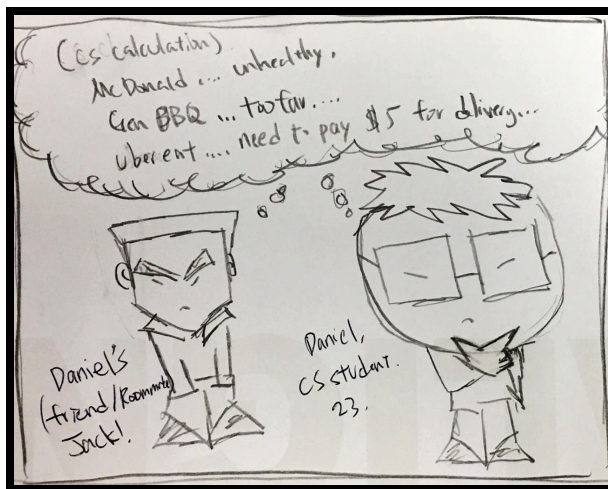 (cs calculation)
McDonald .... unhealthy.
Gen BBQ ... too far....
uberent .... need to pay $5 for delivery...
Daniel's
(friend/Roommate)
Jack!
Daniel,
CS student.
23.